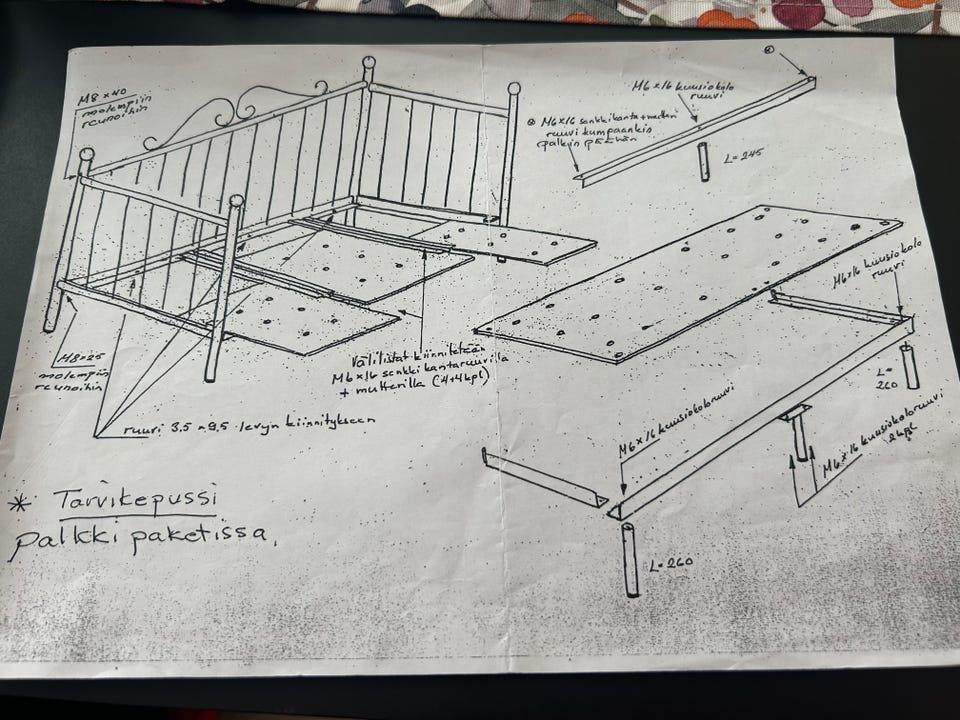 M8 x 40
molempiin
reunoihin
M6x16 kuusiokolo
ruuvi
⊗ M6x16 senkkikanta+mutteri
ruuvi kumpaankin
palkin päähän
L=245
M6x16 kuusiokolo
ruuvi
M8x25
molempiin
reunoihin
Välilistat kiinnitetään
M6x16 senkkikantaruuvilla
+ mutterilla (4+4kpl)
ruuvi 3,5 x 9,5 levyn kiinnitykseen
L=
260
M6x16 kuusiokoloruuvi
M6x16 kuusiokoloruuvi
2kpl
* Tarvikepussi
palkki paketissa,
L=260